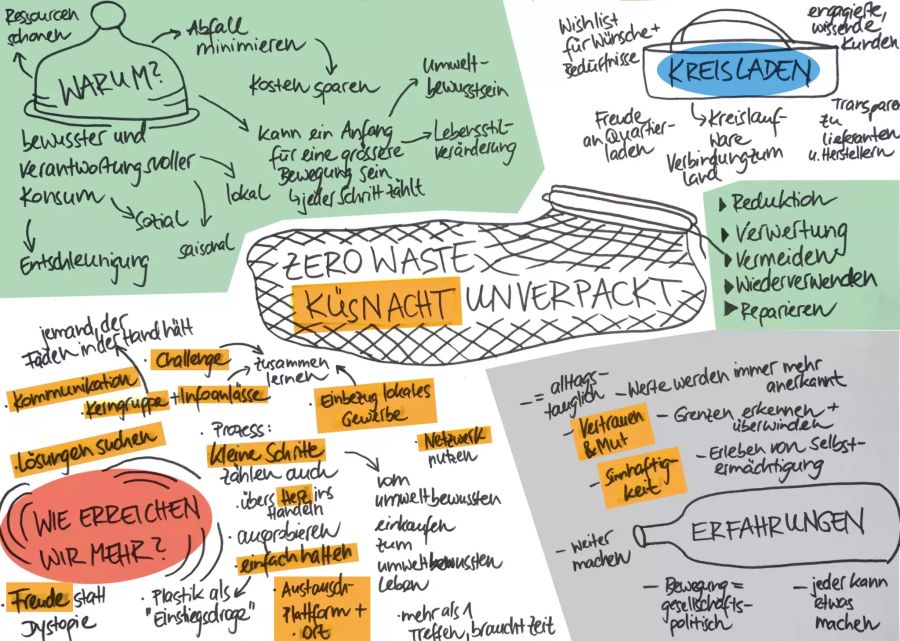 Ressourcen
schonen
WARUM?
Abfall
minimieren
Kosten sparen
Umwelt-
bewusstsein
kann ein Anfang
für eine grössere
Bewegung sein
↳ jeder Schritt zählt
Lebensstil-
veränderung
bewusster und
verantwortungsvoller
Konsum
lokal
sozial
saisonal
Entschleunigung
Wishlist
für Wünsche +
Bedürfnisse
engagierte,
wissende
Kunden
KREISLADEN
Freude
an Quartier-
laden
→ Kreislauf-
ware
Verbindung zum
Land
Transparenz
zu
Lieferanten
u. Herstellern
ZERO WASTE
KÜSNACHT UNVERPACKT
▶ Reduktion
▶ Verwertung
▶ Vermeiden
▶ Wiederverwenden
▶ Reparieren
jemand, der
Fäden in der Hand hält
· Challenge
· Kommunikation
· Kerngruppe + Infoanlässe
zusammen
lernen
· Einbezug lokales
Gewerbe
· Lösungen suchen
· Prozess:
kleine Schritte
zählen auch
· Netzwerk
nutzen
· übers Herz ins
Handeln
· ausprobieren
· einfach halten
vom
umweltbewussten
einkaufen
zum
umweltbewussten
Leben
WIE ERREICHEN
WIR MEHR?
· Freude statt
Dystopie
· Plastik als
"Einstiegsdroge"
· Austausch-
Plattform +
- Ort
· mehr als 1
Treffen, braucht Zeit
- = alltags-
tauglich
- Werte werden immer mehr
anerkannt
- Vertrauen
& Mut
- Grenzen erkennen +
überwinden
- Sinnhaftig-
keit
- Erleben von Selbst-
ermächtigung
ERFAHRUNGEN
- weiter
machen
- Bewegung =
gesellschafts-
politisch
- jeder kann
etwas
machen